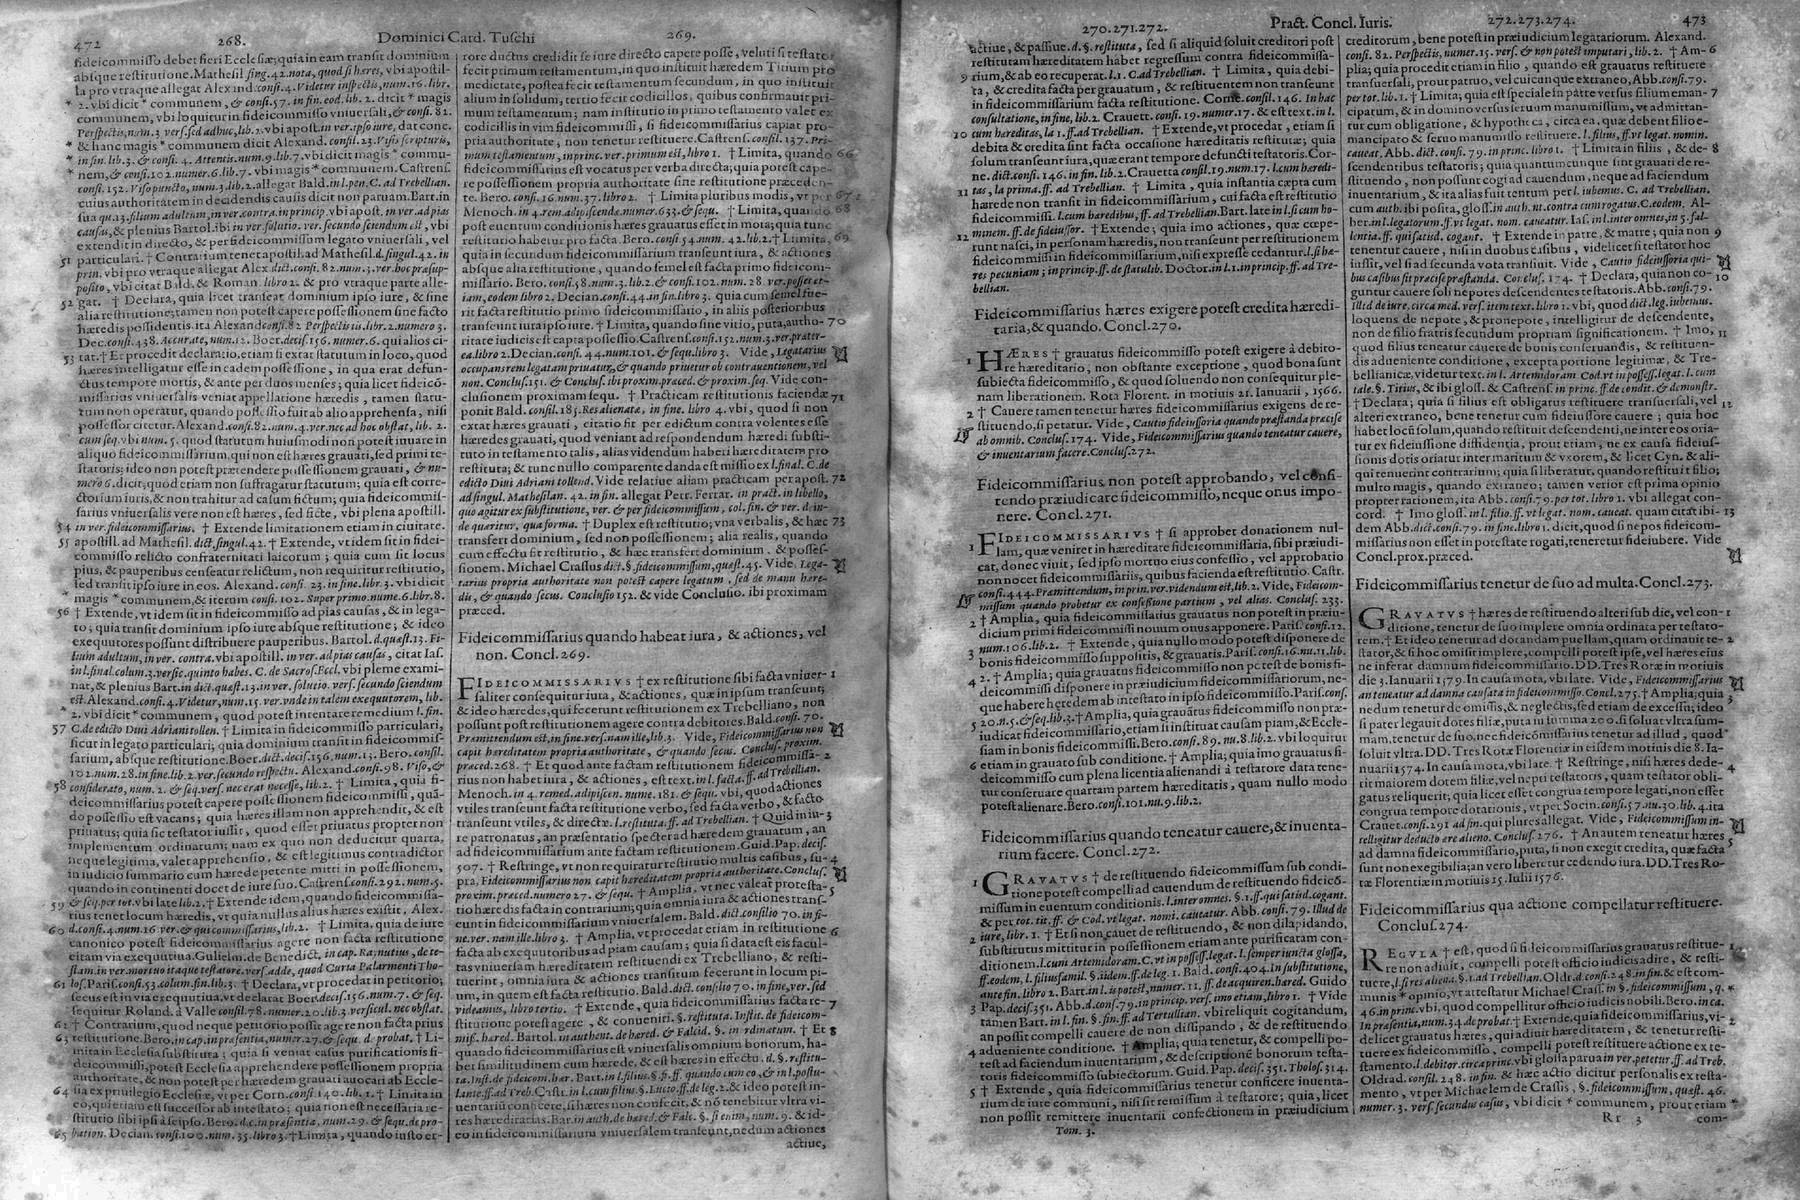 472
268.
Dominici Card. Tuschi
269.
fideicommisso debet fieri Ecclesiæ; quia in eam transit dominium
absque restitutione. Mathesil sing. 42. nota, quod si hæres, vbi apostil-
la pro vtraque allegat Alexand. consi. 4. Videtur inspectis, num. 16. libr.
* 2. vbi dicit * communem, & consi. 57. in fin. eod. lib. 2. dicit * magis
communem, vbi loquitur in fideicommisso vniuersali, & consi. 82.
Perspectis, num. 3. vers. sed adhuc, lib. 2. vbi apost. in ver. ipso iure, dat conc.
* & hanc magis * communem dicit Alexand. consil. 23. Visis scripturis,
* in fin. lib. 3. & consi. 4. Attentis. num. 9. lib. 7. vbi dicit magis * commu-
* nem, & consi. 102. numer. 6. lib. 7. vbi magis * commu. Castrens.
consi. 152. Viso puncto, num. 3. lib. 2. allegat Bald. in l. pen. C. ad Trebellian.
cuius authoritatem in decidendis causis dicit non paruam. Bart. in
sua qu. 13. filium adultum, in ver. contra. in princip. vbi apost. in ver. ad pias
causas, & plenius Bartol. ibi in ver. solutio. ver. secundo sciendum est, vbi
extendit in directo, & per fideicommissum legato vniuersali, vel
51 particulari. † Contrarium tenet apostil. ad Mathesil. d. singul. 42. in
prin. vbi pro vtraque allegat Alex. dict. consi. 82. num. 3. ver. hoc præsup-
posito, vbi citat Bald. & Roman. libro 2. & pro vtraque parte alle-
52 gat. † Declara, quia licet transeat dominium ipso iure, & sine
alia restitutione; tamen non potest capere possessionem sine facto
hæredis possidentis. ita Alexand. consi. 82 Perspectis lib. 2. numero 3.
Dec. consi. 438. Accurate, num. 12. Boer. decis. 156. numer. 6. qui alios ci-
53 tat. † Et procedit declaratio, etiam si extat statutum in loco, quod
hæres intelligatur esse in eadem possessione, in qua erat defun-
ctus tempore mortis, & ante per duos menses; quia licet fideicō-
missarius vniuersalis veniat appellatione hæredis, tamen statu-
tum non operatur, quando possessio fuir ab alio apprehensa, nisi
possessor citetur. Alexand. consi. 82. num. 4. ver. nec ad hoc obstat, lib. 2.
cum seq. vbi num. 5. quod statutum huiusmodi non potest iuuare in
aliquo fideicommissarium, qui non est hæres grauati, sed primi te-
statoris; ideo non potest prætendere possessionem grauati, & nu-
mero 6. dicit, quod etiam non suffragatur statutum; quia est corre-
ctorium iuris, & non trahitur ad casum fictum; quia fideicommis-
sarius vniuersalis vere non est hæres, sed ficte, vbi plena apostill.
54 in ver. fideicommissarius. † Extende limitationem etiam in ciuitate.
55 apostill. ad Mathesil. dict. singul. 42. † Extende, vt idem sit in fidei-
commisso relicto confraternitati laicorum; quia cum sit locus
pius, & pauperibus censeatur relictum, non requiritur restitutio,
sed transit ipso iure in eos. Alexand. consi. 23. in fine. lib. 3. vbi dicit
* magis * communem, & iterum consi. 102. Super primo. nume. 6. lib. 8.
56 † Extende, vt idem sit in fideicommisso ad pias causas, & in lega-
to; quia transit dominium ipso iure absque restitutione; & ideo
exequutores possunt distribuere pauperibus. Bartol. d. quæst. 13. Fi-
lium adultum, in ver. contra. vbi apostill. in ver. ad pias causas, citat Ias.
in l. final. colum. 3. versic. quinto habes. C. de Sacros. Eccl. vbi plene exami-
nat, & plenius Bart. in dict. quæst. 13. in ver. solutio. vers. secundo sciendum
est. Alexand. consi. 4. Videtur, num. 15. ver. vnde in talem exequutorem, lib.
* 2. vbi dicit * communem, quod potest intentare remedium l. fin.
57 C. de edicto Diui Adriani tollen. † Limita in fideicommisso particulari,
sicut in legato particulari; quia dominium transit in fideicommis-
sarium, absque restitutione. Boer. dict. decis. 156, num. 13. Bero. consil.
102. num. 28. in fine. lib. 2. ver. secundo respectu. Alexand. consi. 98. Viso, &
58 considerato, num. 2. & seq. vers. nec erat necesse, lib. 2. † Limita, quia fi-
deicommissarius potest capere possessionem fideicommissi, quā-
do possessio est vacans; quia hæres illam non apprehendit, & est
priuatus; quia sic testator iussit, quod esset priuatus propter non
implementum ordinatum; nam ex quo non deducitur quarta,
neque legitima, valet apprehensio, & est legitimus contradictor
in iudicio summario cum hærede petente mitti in possessionem,
quando in continenti docet de iure suo. Castrens. consi. 292. num. 5.
59 & seq. per tot. vbi late lib. 2. † Extende idem, quando fideicommissa-
rius tenet locum hæredis, vt quia nullus alius hæres existit, Alex.
60 d. consi. 4. num. 16 ver. & qui commissarius, lib. 2. † Limita, quia de iure
canonico potest fideicommissarius agere non facta restitutione
etiam via exequutiua. Gulielm. de Benedict. in cap. Rainutius, de te-
stam. in ver. mortuo itaque testatore. vers. adde, quod Curia Palarmenti Tho-
61 los. Paris. consi. 53. colum. fin. lib. 3. † Declara, vt procedat in petitorio;
secus est in via exequutiua. vt declarat Boer. decis. 156. num. 7. & seq.
sequitur Roland. à Valle consil. 78. numer. 20. lib. 3. versicul. nec obstat.
62 † Contrarium, quod neque petitorio possit agere non facta prius
63 restitutione. Bero. in cap. in præsentia, numer. 27. & sequ. d. probat. † Li-
mita in Ecclesia substituta; quia si veniat casus purificationis fi-
deicommissi, potest Ecclesia apprehendere possessionem propria
authoritate, & non potest per hæredem grauati auocari ab Eccle-
64 sia ex priuilegio Ecclesiæ, vt per Corn. consi. 140. lib. 1. † Limita in
eo, qui etiam est successor ab intestato; quia non est necessaria re-
stitutio sibi ipsi à se ipso. Bero. d. c. in præsentia, num. 29. & sequ. de pro-
65 bation. Decian. consi. 100. num. 35. libro 3. † Limita, quando iusto er-
rore ductus credidit se iure directo capere posse, veluti si testator
fecit primum testamentum, in quo instituit hæredem Titium pro
medietate, postea fecit testamentum secundum, in quo instituit
alium in solidum, tertio fecit codicillos, quibus confirmauit pri-
mum testamentum; nam institutio in primo testamento valet ex
codicillis in vim fideicommissi, si fideicommissarius capiat pro-
pria authoritate, non tenetur restituere. Castrens. consil. 137. Pri-
mum testamentum, in princ. ver. primum est, libro 1. † Limita, quando 66
fideicommissarius est vocatus per verba directa; quia potest cape-
re possessionem propria authoritate sine restitutione præceden-
te. Bero. consi. 16. num. 37. libro 2. † Limita pluribus modis, vt per 67
Menoch. in 4. rem. adipiscenda. numer. 633. & sequ. † Limita, quando 68
post euentum conditionis hæres grauatus esset in mora; quia tunc
restitutio habetur pro facta. Bero. consi. 54. num. 42. lib. 2. † Limita, 69
quia in secundum fideicommissarium transeunt iura, & actiones
absque alia restitutione, quando semel est facta primo fideicom-
missario. Bero. consi. 58. num. 3. lib. 2. & consi. 102. num. 28 ver. posset et-
iam, eodem libro 2. Decian. consi. 44. in fin. libro 3. quia cum semel fue-
rit facta restitutio primo fideicommissario, in aliis posterioribus
transeunt iura ipso iure. † Limita, quando sine vitio, puta, autho- 70
ritate iudicis est capta possessio. Castrens. consi. 152. num. 3. ver. præter-
ea. libro 2. Decian. consi. 44. num. 101. & sequ. libro 3. Vide, Legatarius
occupans rem legatam priuatur, & quando priuetur ob contrauentionem, vel
non. Conclus. 151. & Conclus. ibi proxim. præced. & proxim. seq. Vide con-
clusionem proximam sequ. † Practicam restitutionis faciendæ 71
ponit Bald. consil. 185. Res alienata, in fine. libro 4. vbi, quod si non
extat hæres grauati, citatio fit per edictum contra volentes esse
hæredes grauati, quod veniant ad respondendum hæredi substi-
tuto in testamento talis, alias videndum haberi hæreditatem pro
restituta; & tunc nullo comparente danda est missio ex l. final. C. de
edicto Diui Adriani tollend. Vide relatiue aliam practicam per apost. 72
ad singul. Mathesilan. 42. in fin. allegat Petr. Ferrar. in pract. in libello,
quo agitur ex substitutione, ver. & per fideicommissum, col. fin. & ver. d. in-
de quæritur, qua forma. † Duplex est restitutio; vna verbalis, & hæc 73
transfert dominium, sed non possessionem; alia realis, quando
cum effectu fit restitutio, & hæc transfert dominium, & posses-
sionem. Michael Crassus dict. §. fideicommissum, quæst. 45. Vide, Lega-
tarius propria authoritate non potest capere legatum, sed de manu hære-
dis, & quando secus. Conclusio 152. & vide Conclusio. ibi proximam
præced.
Fideicommissarius quando habeat iura, & actiones, vel
non. Concl. 269.
FIDEICOMMISSARIVS † ex restitutione sibi facta vniuer- 1
saliter consequitur iura, & actiones, quæ in ipsum transeunt;
& ideo hæredes, qui fecerunt restitutionem ex Trebelliano, non
possunt post restitutionem agere contra debitores. Bald. consi. 70.
Præmittendum est, in fine. vers. nam ille, lib. 3. Vide, Fideicommissarius non
capit hereditatem propria authoritate, & quando secus. Conclus. proxim.
præced. 268. † Et quod ante factam restitutionem fideicommissa- 2
rius non habet iura, & actiones, est text. in l. facta. ff. ad Trebellian.
Menoch. in 4. remed. adipiscen. nume. 181. & sequ. vbi, quod actiones
vtiles transeunt facta restitutione verbo, sed facta verbo, & facto
transeunt vtiles, & directæ. l. restituta. ff. ad Trebellian. † Quid in iu- 3
re patronatus, an præsentatio spectet ad hæredem grauatum, an
ad fideicommissarium ante factam restitutionem. Guid. Pap. decis.
507. † Restringe, vt non requiratur restitutio multis casibus, su- 4
pra, Fideicommissarius non capit hereditatem propria authoritate. Conclus.
proxim. præced. numero 27. & sequ. † Amplia, vt nec valeat protesta- 5
tio hæredis facta in contrarium; quia omnia iura & actiones trans-
eunt in fideicommissarium vniuersalem. Bald. dict. consilio 70. in fi-
ne. ver. nam ille. libro 3. † Amplia, vt procedat etiam in restitutione 6
facta ab exequutoribus ad piam causam; quia si data est eis facul-
tas vniuersam hæreditatem restituendi ex Trebelliano, & resti-
tuerint, omnia iura, & actiones transitum fecerunt in locum pi-
um, in quem est facta restitutio. Bald. dict. consilio 70. in fine, ver. sed
videamus, libro tertio. † Extende, quia fideicommissarius facta re- 7
stitutione potest agere, & conueniri. §. restituta. Instit. de fideicom-
miss. hæred. Bartol. in authent. de hæred. & Falcid. §. in ordinatum. † Et 8
quando fideicommissarius est vniuersalis omnium bonorum, ha-
bet similitudinem cum hærede, & est hæres in effectu. d. §. restitu-
ta. Inst. de fideicom. hær. Bart. in l. filius. §. fi. ff. quando cum eo, & in l. postu-
lante. ff. ad Treb. Cast. in l. cum filius. §. Lucio. ff. de leg. 2. & ideo potest in-
uentariū conficere, si hæres non confecit, & nō tenebitur vltra vi-
res hæreditatis. Bar. in auth. de hæred. & Falc. §. si enim, num. 9. & id-
eo in fideicommissarium vniuersalem transeunt, nedum actiones
actiue,
270. 271. 272.
Pract. Concl. Iuris.
272. 273. 274.
473
actiue, & passiue. d. §. restituta, sed si aliquid soluit creditori post
restitutam hæreditatem habet regressum contra fideicommissa-
9 rium, & ab eo recuperat. l. 1. C. ad Trebellian. † Limita, quia debi-
ta, & credita facta per grauatum, & restituentem non transeunt
in fideicommissarium facta restitutione. Corne. consil. 146. In hac
consultatione, in fine, lib. 2. Crauett. consi. 19. numer. 17. & est text. in l.
10 cum hæreditas, la 1. ff. ad Trebellian. † Extende, vt procedat, etiam si
debita & credita sint facta occasione hæreditatis restitutæ; quia
solum transeunt iura, quæ erant tempore defuncti testatoris. Cor-
ne. dict. consi. 146. in fin. lib. 2. Crauetta consil. 19. num. 17. l. cum hæredi-
11 tas, la prima. ff. ad Trebellian. † Limita, quia instantia cœpta cum
hærede non transit in fideicommissarium, cui facta est restitutio
fideicommissi. l. cum hæredibus, ff. ad Trebellian. Bart. late in l. si cum ho-
12 minem. ff. de fideiussor. † Extende; quia imo actiones, quæ cœpe-
runt nasci, in personam hæredis, non transeunt per restitutionem
fideicommissi in fideicommissarium, nisi expresse cedantur. l. si hæ-
res pecuniam; in princip. ff. de statulib. Doctor. in l. 1. in princip. ff. ad Tre-
bellian.
Fideicommissarius hæres exigere potest credita hæredi-
taria, & quando. Concl. 270.
1 HÆRES † grauatus fideicommisso potest exigere à debito-
re hæreditario, non obstante exceptione, quod bona sunt
subiecta fideicommisso, & quod soluendo non consequitur ple-
nam liberationem. Rota Florent. in motiuis 21. Ianuarii, 1566.
2 † Cauere tamen tenetur hæres fideicommissarius exigens de re-
stituendo, si petatur. Vide, Cautio fideiussoria quando præstanda præcise
ab omnib. Conclus. 174. Vide, Fideicommissarius quando teneatur cauere,
& inuentarium facere. Conclus. 272.
Fideicommissarius non potest approbando, vel consi-
tendo præiudicare fideicommisso, neque onus impo-
nere. Concl. 271.
1 FIDEICOMMISSARIVS † si approbet donationem nul-
lam, quæ veniret in hæreditate fideicommissaria, sibi præiudi-
cat, donec viuit, sed ipso mortuo eius confessio, vel approbatio
non nocet fideicommissariis, quibus facienda est restitutio. Castr.
consi. 444. Præmittendum, in prin. ver. videndum est, lib. 2. Vide, Fideicom-
missum quando probetur ex confessione partium, vel alias. Conclus. 233.
2 † Amplia, quia fideicommissarius grauatus non potest in præiu-
dicium primi fideicommissi nouum onus apponere. Paris. consi. 12.
num. 106. lib. 2. † Extende, quia nullo modo potest disponere de
3 bonis fideicommisso suppositis, & grauatis. Paris. consi. 16. nu. 11. lib.
4 2. † Amplia; quia grauatus fideicommisso non potest de bonis fi-
deicommissi disponere in præiudicium fideicommissariorum, ne-
que habere heredem ab intestato in ipso fideicommisso. Paris. cons.
5 20. n. 5. & seq. lib. 3. † Amplia, quia grauatus fideicommisso non præ-
iudicat fideicommissario, etiam si instituat causam piam, & Eccle-
siam in bonis fideicommissi. Bero. consi. 89. nu. 8. lib. 2. vbi loquitur
6 etiam in grauato sub conditione. † Amplia; quia imo grauatus fi-
deicommisso cum plena licentia alienandi à testatore data tene-
tur conseruare quartam partem hæreditatis, quam nullo modo
potest alienare. Bero. consi. 101. nu. 9. lib. 2.
Fideicommissarius quando teneatur cauere, & inuenta-
rium facere. Concl. 272.
1 GRAVATVS † de restituendo fideicommissum sub condi-
tione potest compelli ad cauendum de restituendo fideicō-
missum in euentum conditionis. l. inter omnes. §. 1. ff. qui satisd. cogant.
& per tot. tit. ff. & Cod. vt legat. nomi. caueatur. Abb. consi. 79. Illud de
2 iure, libr. 1. † Et si non cauet de restituendo, & non dilapidando,
substitutus mittitur in possessionem etiam ante purificatam con-
ditionem. l. cum Artemidoram. C. vt in possess. legat. l. semper iuncta glossa,
ff. eodem, l. filiusfamil. §. iidem. ff. de leg. 1. Bald. consi. 404. In substitutione,
ante fin. libro 2. Bart. in l. is potest, numer. 11. ff. de acquiren. hæred. Guido
3 Pap. decis. 351. Abb. d. consi. 79. in princip. vers. imo etiam, libro 1. † Vide
tamen Bart. in l. fin. §. fin. ff. ad Tertullian. vbi reliquit cogitandum,
an possit compelli cauere de non dissipando, & de restituendo
4 adueniente conditione. † Amplia; quia tenetur, & compelli po-
test ad faciendum inuentarium, & descriptionē bonorum testa-
toris fideicommisso subiectorum. Guid. Pap. decis. 351. Tholos. 314.
5 † Extende, quia fideicommissarius tenetur conficere inuenta-
rium de iure communi, nisi sit remissum à testatore; quia, licet
non possit remittere inuentarii confectionem in præiudicium
Tom. 3.
creditorum, bene potest in præiudicium legatariorum. Alexand.
consi. 82. Perspectis, numer. 15. vers. & non potest imputari, lib. 2. † Am- 6
plia; quia procedit etiam in filio, quando est grauatus restituere
transuersali, prout patruo, vel cuicunque extraneo, Abb. consi. 79.
per tot. lib. 1. † Limita; quia est speciale in patre versus filium eman- 7
cipatum, & in domino versus seruum manumissum, vt admittan-
tur cum obligatione, & hypotheca, circa ea, quæ debent filio e-
mancipato & seruo manumisso restituere. l. filius, ff. vt legat. nomin.
caueat, Abb. dict. consi. 79. in princ. libro 1. † Limita in filiis, & de- 8
scendentibus testatoris; quia quantumcunque sint grauati de re-
stituendo, non possunt cogi ad cauendum, neque ad faciendum
inuentarium, & ita alias fuit tentum per l. iubemus. C. ad Trebellian.
cum auth. ibi posita, gloss. in auth. vt. contra cum rogatus. C. eodem, Al-
ber. in l. legatorum. ff. vt legat. nom. caueatur. Ias. in l. inter omnes, in 5. fal-
lentia. ff. qui satisd. cogant. † Extende in patre, & matre; quia non 9
tenentur cauere, nisi in duobus casibus, videlicet si testator hoc
iussit, vel si ad secunda vota transiuit. Vide, Cautio fideiussoria qui-
bus casibus sit præcise præstanda. Conclus. 174. † Declara, quia non co- 10
guntur cauere soli nepotes descendentes testatoris. Abb. consi. 79.
Illud de iure. circa med. vers. item text. libro 1. vbi, quod dict. leg. iubemus.
loquens de nepote, & pronepote, intelligitur de descendente,
non de filio fratris secundum propriam significationem. † Imo, 11
quod filius teneatur cauere de bonis conseruandis, & restituen-
dis adueniente conditione, excepta portione legitimæ, & Tre-
bellianicæ, videtur text. in l. Artemidoram. Cod. vt in possess. legat. l. cum
tale. §. Titius, & ibi gloss. & Castrens. in princ. ff. de condit. & demonstr.
† Declara; quia si filius est obligatus restituere transuersali, vel 12
alteri extraneo, bene tenetur cum fideiussore cauere; quia hoc
habet locū solum, quando restituit descendenti, ne inter eos oria-
tur ex fideiussione diffidentia, prout etiam, ne ex causa fideius-
sionis dotis oriatur inter maritum & vxorem, & licet Cyn. & ali-
qui tenuerint contrarium; quia si liberatur, quando restituit filio;
multo magis, quando extraneo; tamen verior est prima opinio
propter rationem, ita Abb. consi. 79. per tot. libro 1. vbi allegat con-
cord. † Imo gloss. in l. filio. ff. vt legat. nom. caueat. quam citat ibi- 13
dem Abb. dict. consi. 79. in fine. libro 1. dicit, quod si nepos fideicom-
missarius non esset in potestate rogati, teneretur fideiubere. Vide
Concl. prox. præced.
Fideicommissarius tenetur de suo ad multa. Concl. 273.
GRAVATVS † hæres de restituendo alteri sub die, vel con- 1
ditione, tenetur de suo implere omnia ordinata per testato-
rem. † Et ideo tenetur ad dotandam puellam, quam ordinauit te- 2
stator, & si hoc omisit implere, compelli potest ipse, vel hæres eius
ne inferat damnum fideicommissario. DD. Tres Rotæ in motiuis
die 3. Ianuarii 1579. In causa mota, vbi late. Vide, Fideicommissarius
an teneatur ad damna causata in fideicommisso. Concl. 275. † Amplia; quia 3
nedum tenetur de omissis, & neglectis, sed etiam de excessu; ideo
si pater legauit dotes filiæ, puta in summa 200. si soluat vltra sum-
mam, tenetur de suo, nec fideicommissum tenetur ad illud, quod
soluit vltra. DD. Tres Rotæ Florentiæ in eisdem motiuis die 8. Ia-
nuarii 1574. In causa mota, vbi late. † Restringe, nisi hæres dede- 4
rit maiorem dotem filiæ, vel nepti testatoris, quam testator obli-
gatus reliquerit; quia licet esset congrua tempore legati, non esset
congrua tempore dotationis, vt per Socin. consi. 57. nu. 30. lib. 4. ita
Crauet. consi. 291 ad fin. qui plures allegat. Vide, Fideicommissum in-
telligitur deducto ære alieno. Conclus. 276. † An autem teneatur hæres
ad damna fideicommisso, puta, si non exegit credita, quæ facta 5
sunt non exegibilia; an vero liberetur cedendo iura. DD. Tres Ro-
tæ Florentiæ in motiuis 15. Iulii 1576.
Fideicommissarius qua actione compellatur restituere.
Conclus. 274.
REGVLA † est, quod si fideicommissarius grauatus restitue- 1
re non adiuit, compelli potest officio iudicis adire, & resti-
tuere, l. si res aliena. §. 1. ad Trebellian. Oldr. d. consi. 248. in fin. & est com-
munis * opinio, vt attestatur Michael Crass. in §. fideicommissum, q. *
46. in princ. vbi, quod compellitur officio iudicis nobili. Bero. in ca.
In præsentia, num. 34. de probat. † Extende, quia fideicommissarius, vi- 2
delicet grauatus hæres, qui adiuit hæreditatem, & tenetur resti-
tuere ex fideicommisso, compelli potest restituere actione ex te-
stamento. l. debitor. circa princ. vbi glossa parua in ver. petetur. ff. ad Treb.
Oldrad. consil. 248. in fin. & hæc actio dicitur personalis ex testa-
mento, vt per Michaelem de Crassis, §. fideicommissum, quæst. 46.
numer. 3. vers. secundus casus, vbi dicit * communem, prout etiam *
Rr 3
com-